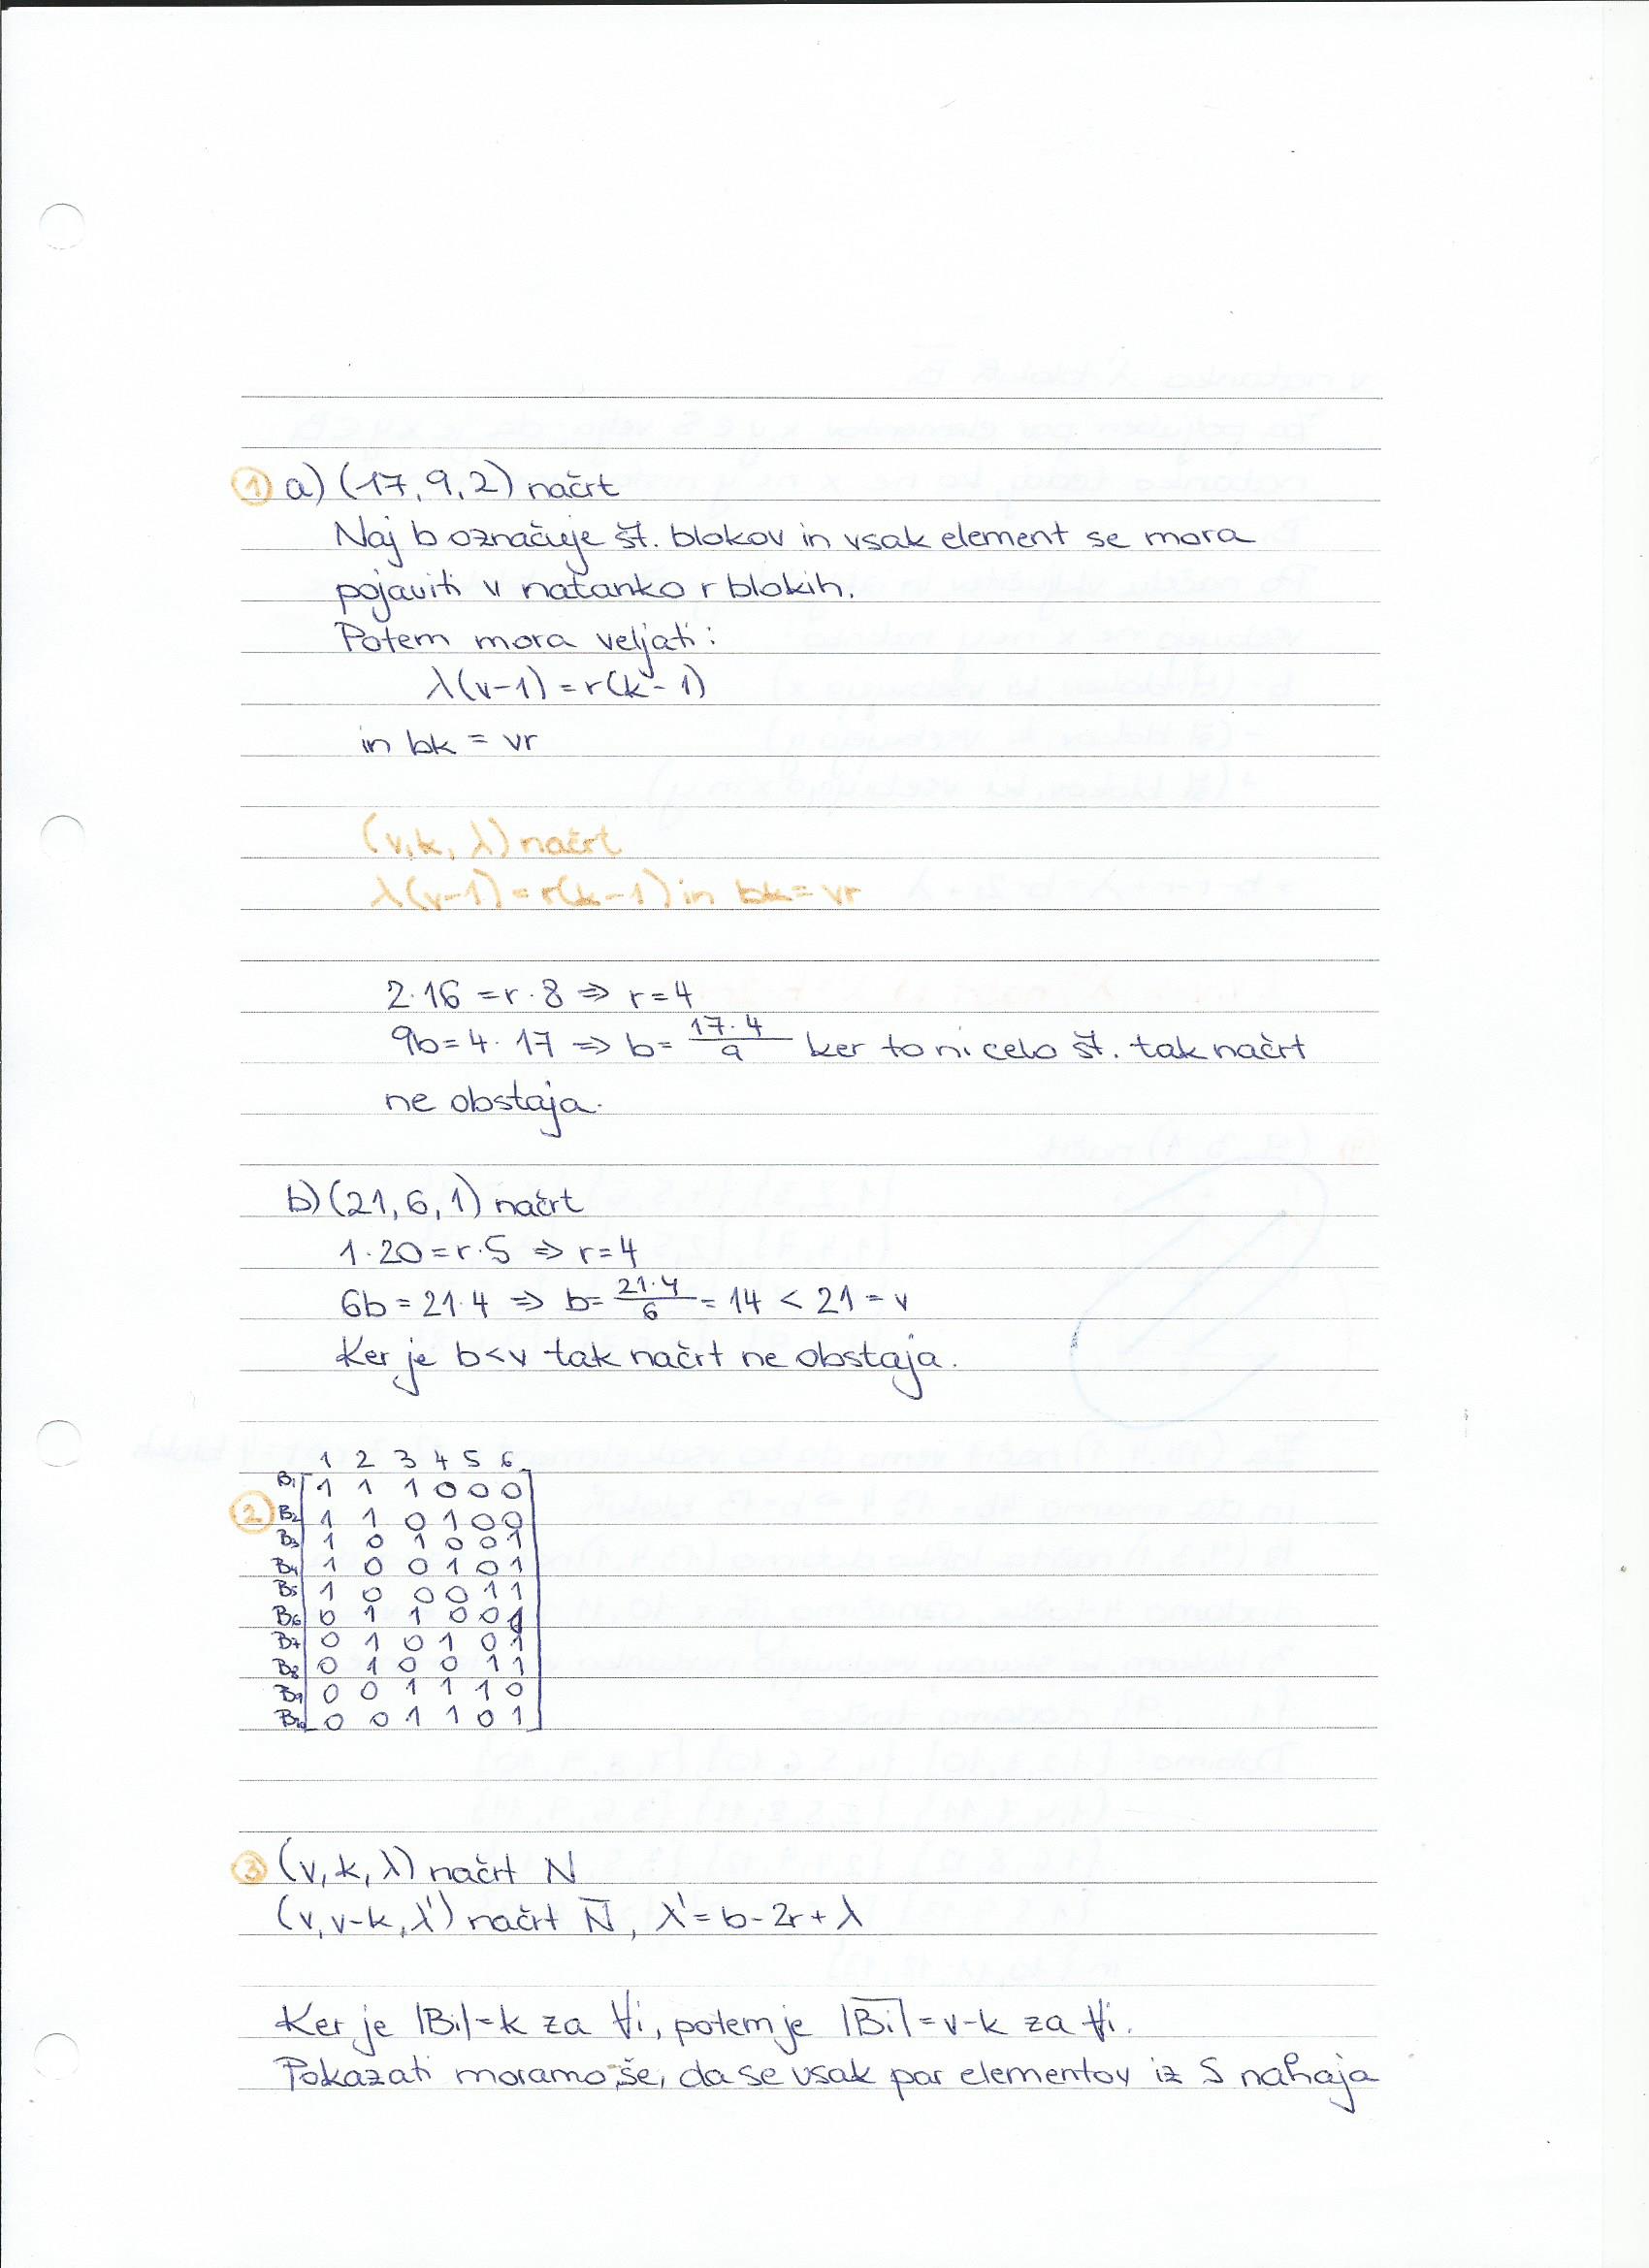 ① a) (17, 9, 2) načrt
Naj b označuje št. blokov in vsak element se mora
pojaviti v natanko r blokih.
Potem mora veljati:
λ(v-1) = r(k-1)
in bk = vr
(v, k, λ) načrt
λ(v-1) = r(k-1) in bk = vr
2·16 = r·8 ⇒ r=4
9b = 4·17 ⇒ b = 17·4/9 ker to ni celo št. tak načrt
ne obstaja.
b) (21, 6, 1) načrt
1·20 = r·5 ⇒ r=4
6b = 21·4 ⇒ b = 21·4/6 = 14 < 21 = v
Ker je b<v tak načrt ne obstaja.
1 2 3 4 5 6
B1 1 1 1 0 0 0
② B2 1 1 0 1 0 0
B3 1 0 1 0 0 1
B4 1 0 0 1 0 1
B5 1 0 0 0 1 1
B6 0 1 1 0 0 1
B7 0 1 0 1 0 1
B8 0 1 0 0 1 1
B9 0 0 1 1 1 0
B10 0 0 1 1 0 1
③ (v, k, λ) načrt N
(v, v-k, λ') načrt N̅, λ' = b-2r+λ
Ker je |Bi| = k za ∀i, potem je |B̅i̅| = v-k za ∀i.
Pokazati moramo še, da se vsak par elementov iz S nahaja